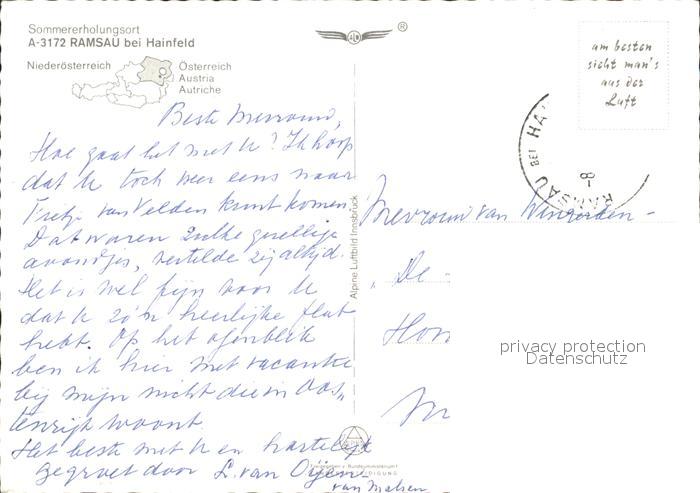 Sommererholungsort
A-3172 RAMSAU bei Hainfeld
Niederösterreich
Österreich
Austria
Autriche
®
am besten
sieht man's
aus der
Luft
BEI HA
RAMSAU
8-
Beste Mevrouw,
Hoe gaat het met U? Ik hoop
dat U toch weer eens naar
Fietje van Velden kunt komen.
Dat waren zulke gezellige
avondjes, vertelde zij altijd.
Het is wel fijn voor U
dat U zo'n heerlijke flat
hebt. Op het ogenblik
ben ik hier met vacantie
bij mijn nicht die in Oos„
tenrijk woont.
Het beste met U en hartelijk
gegroet door L. van
van
Alpine Luftbild Innsbruck
Mevrouw van -
„De -
Hoo
privacy protection
Datenschutz